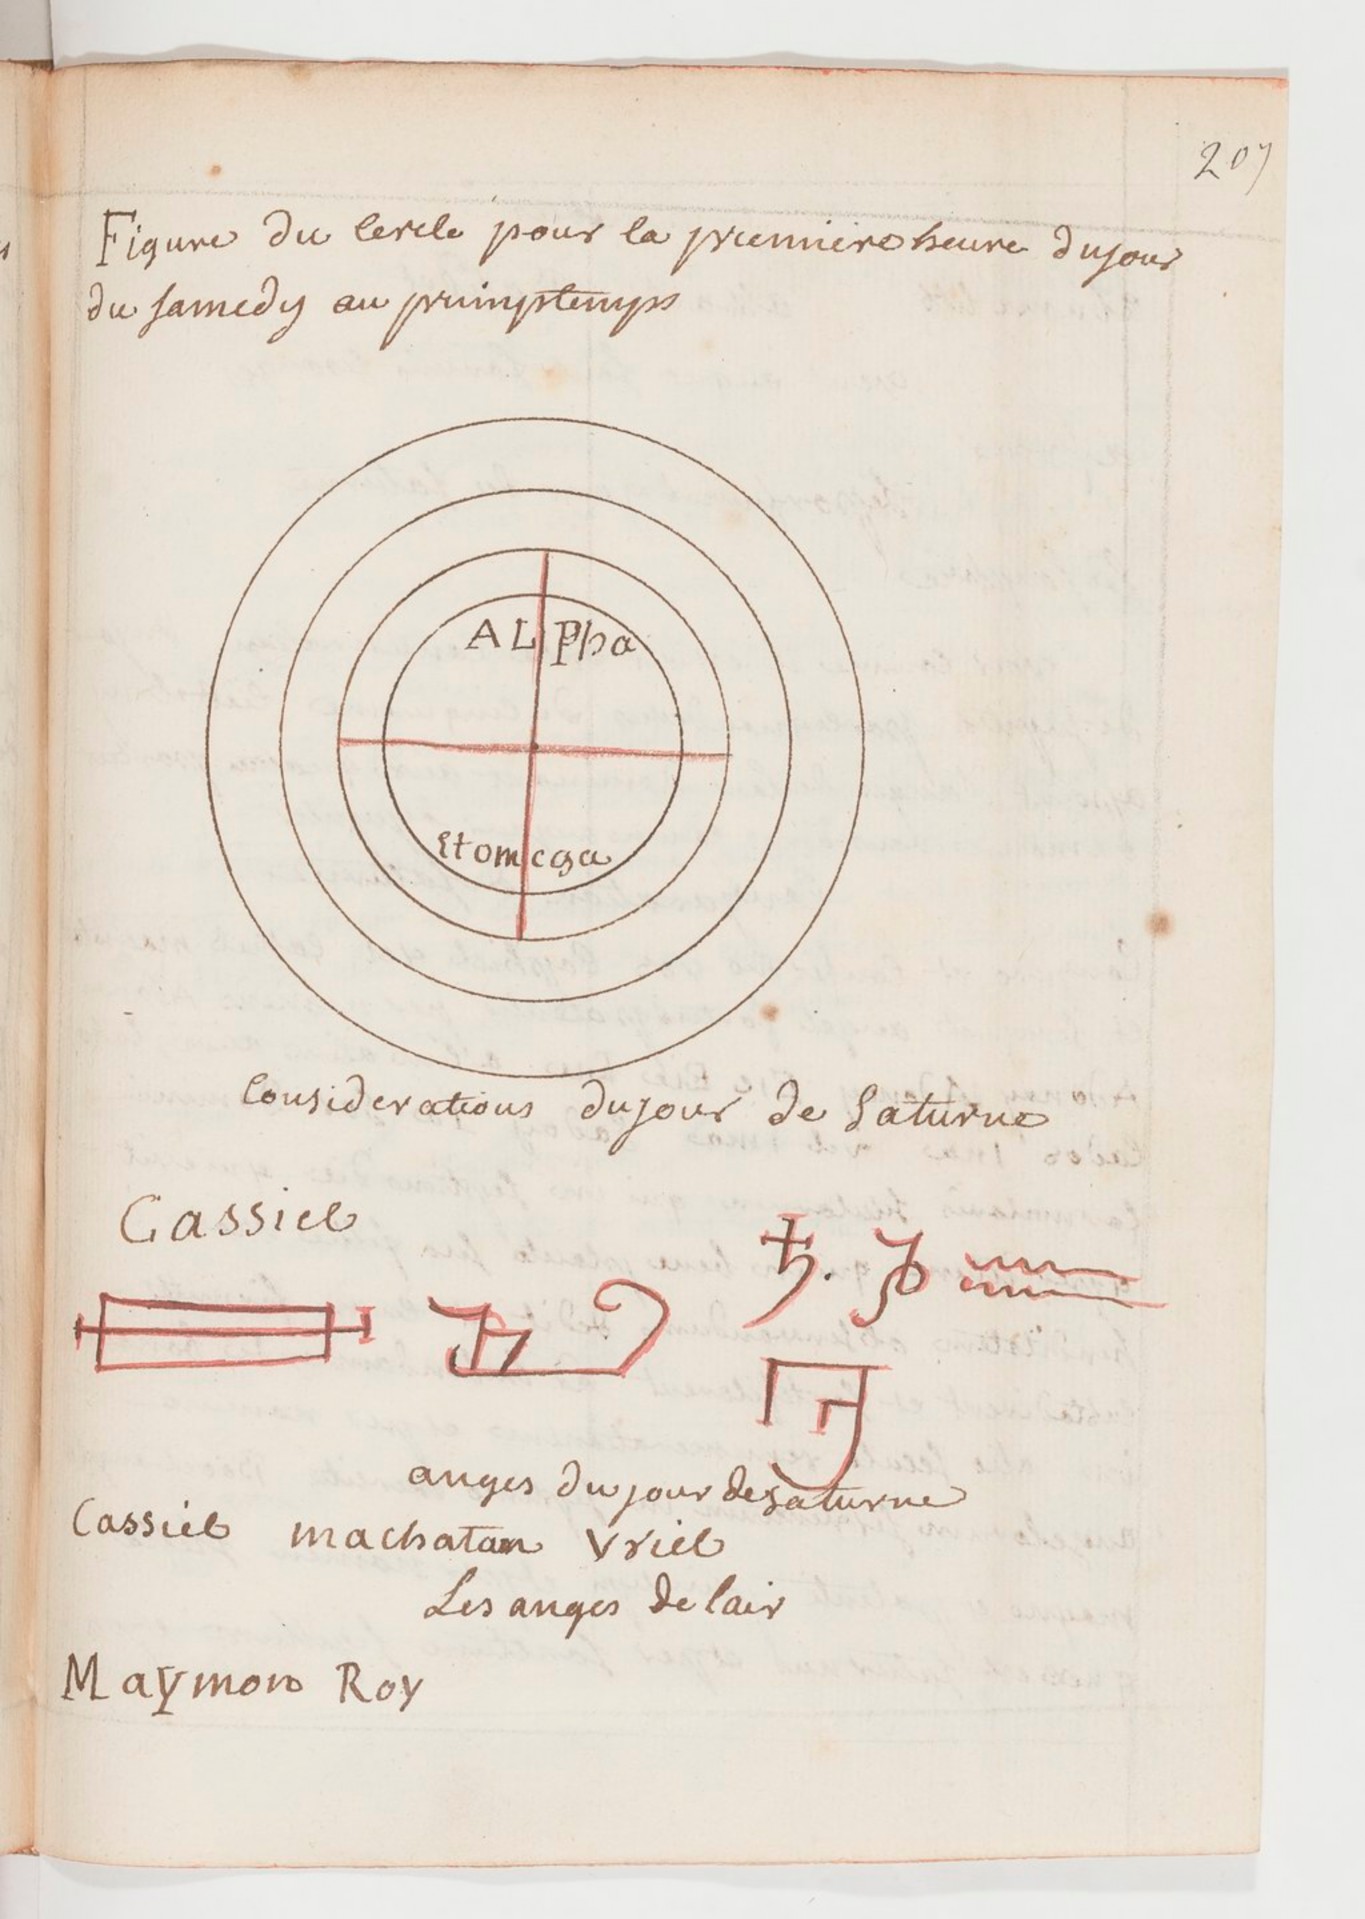 207
Figure du cercle pour la premiere heure du jour
du samedy au primptemps
ALPha
Et omega
Considerations du jour de Saturne
Cassiel
♄. ♑ ♒
anges du jour de Saturne
Cassiel machatan Vriel
Les anges de lair
Maymon Roy